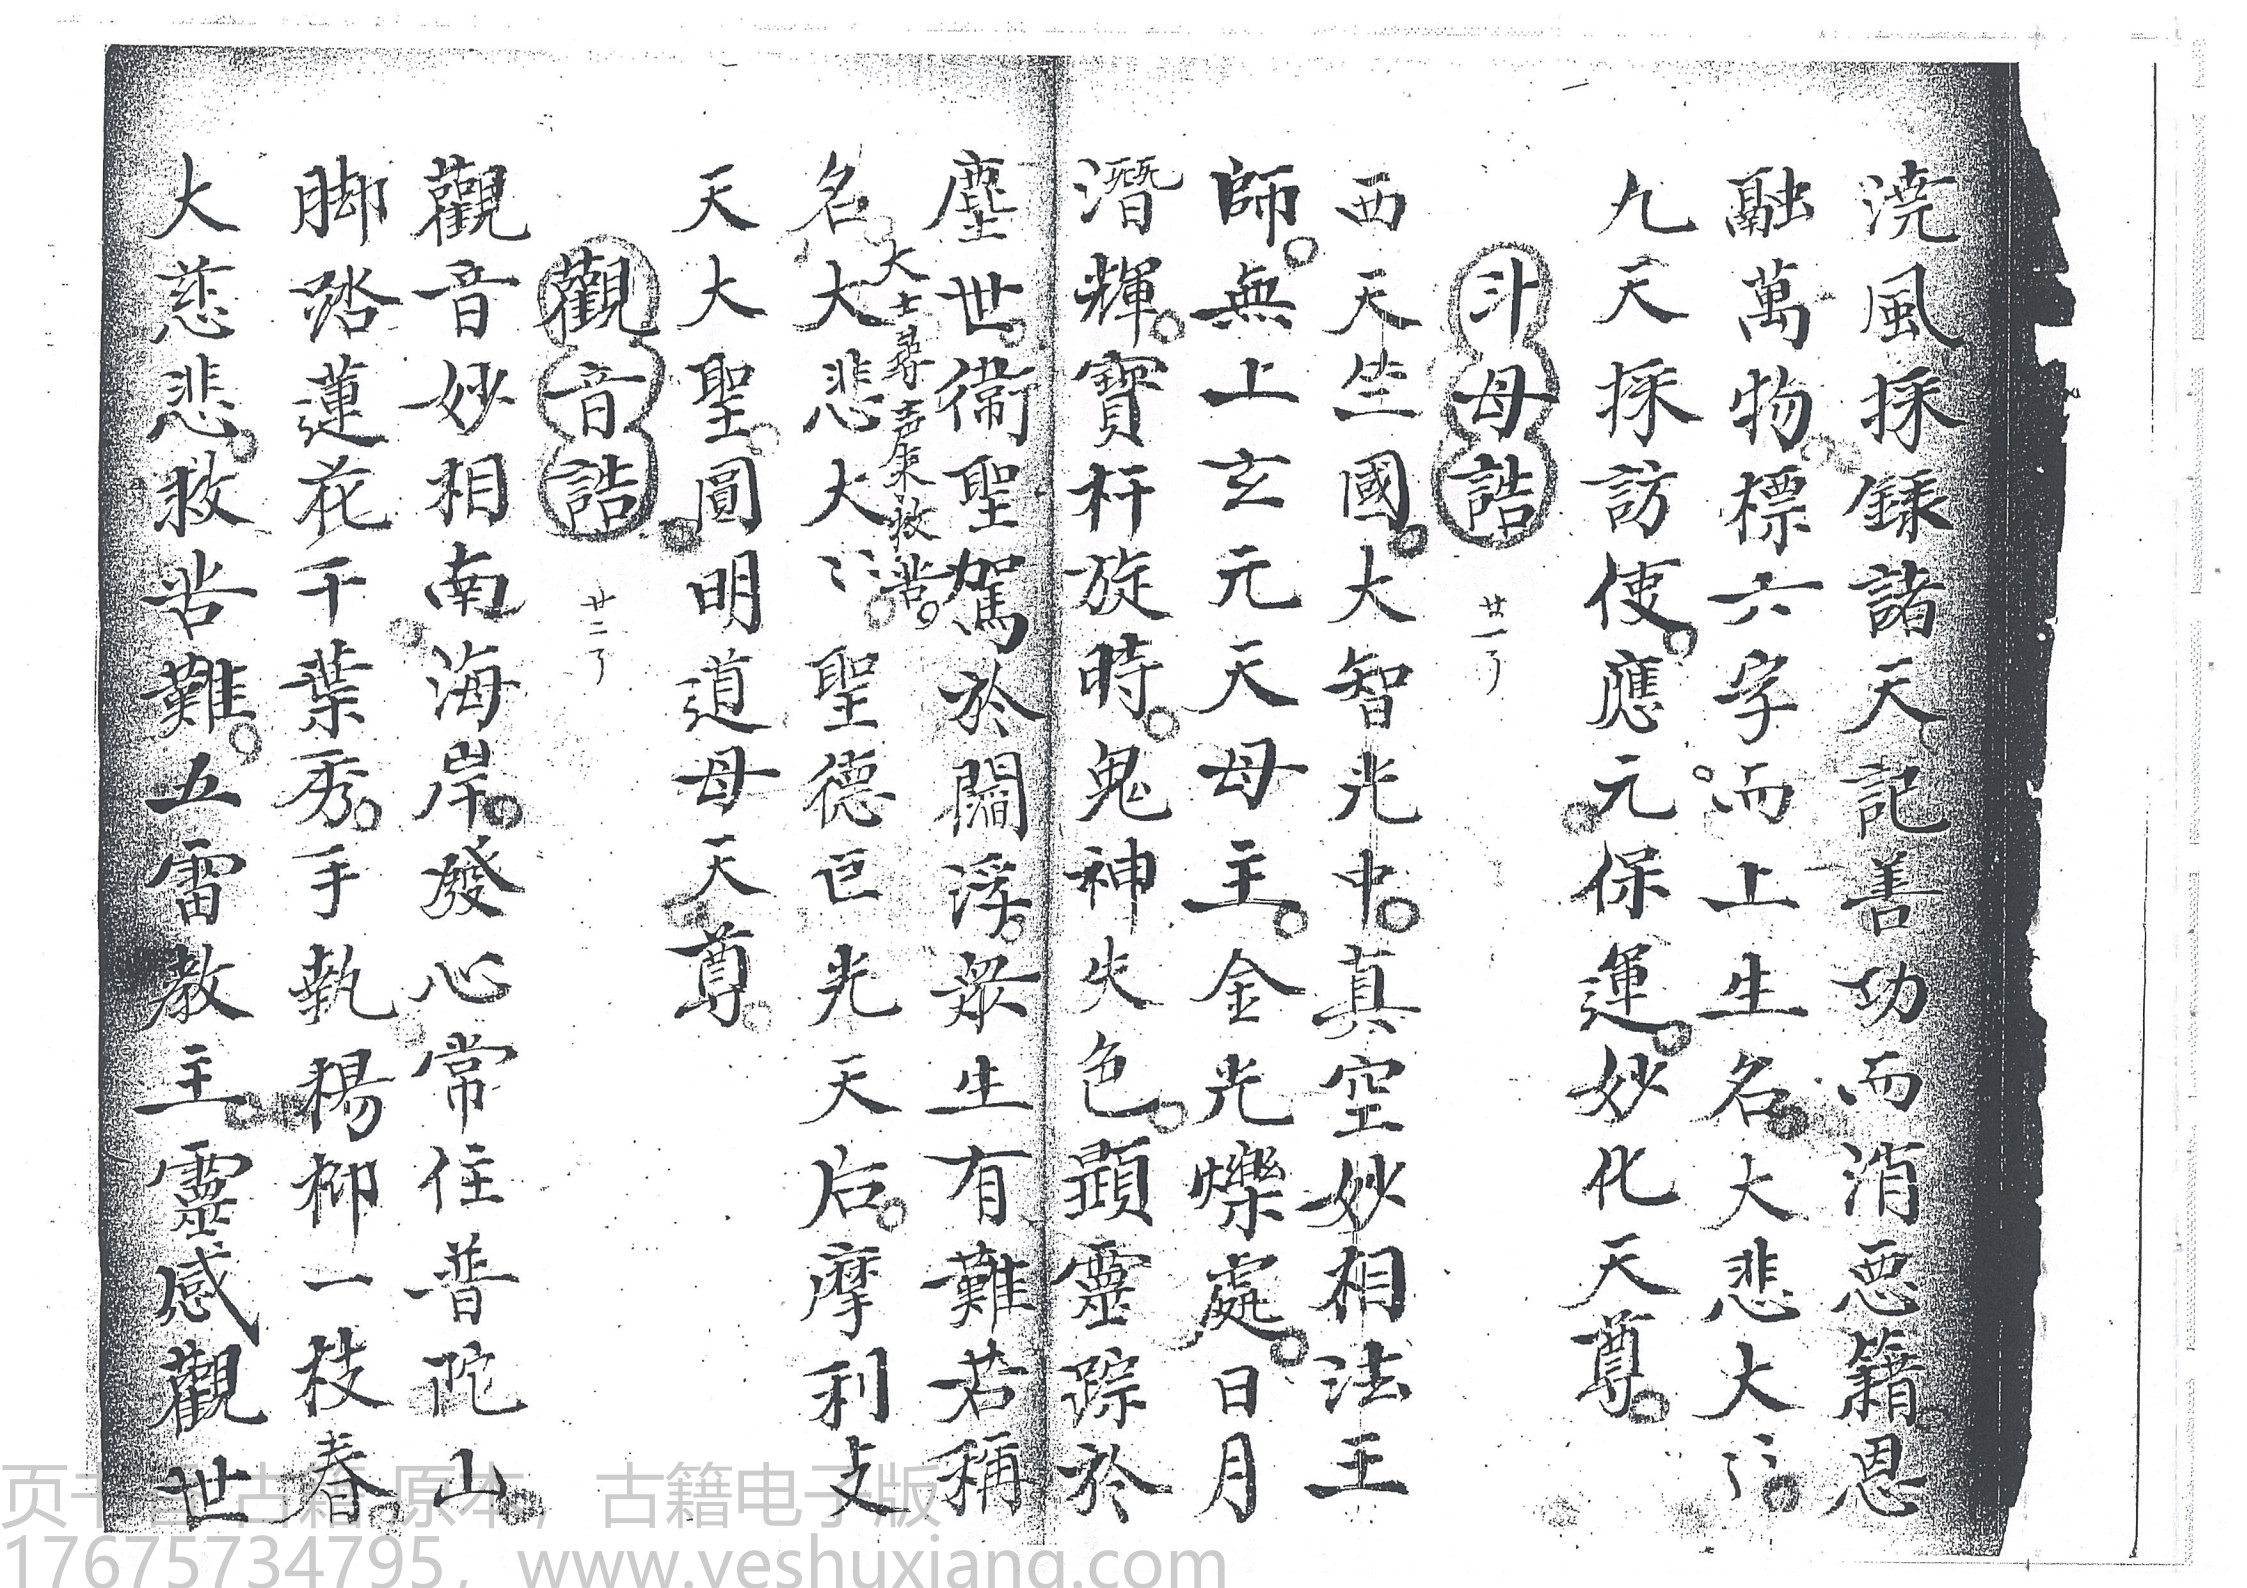 澆風採錄諸天記善功而消惡籍恩
融萬物標六字而上生名大悲大〻
九天採訪使應元保運妙化天尊
斗母誥
廿一丁
西天竺國大智光中真空妙相法王
師無上玄元天母主金光爍處日月
潛輝寶杵旋時鬼神失色顕靈踪於
塵世衞聖駕於閻浮衆生有難若稱
名大士尋声來救苦
大悲大〻聖德巨光天后摩利支
天大聖圓明道母天尊
觀音誥
廿二丁
觀音妙相南海岸發心常住普陀山
脚踏蓮花千葉秀手執楊柳一枝春
大慈悲救苦難五雷教主靈感觀世
页 古籍原本，古籍电子版
17675734795, www.yeshuxiang.com